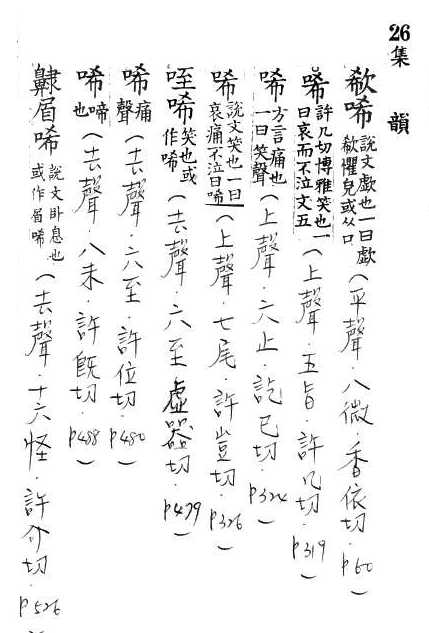 26集 韻
欷唏 說文歔也一曰歔欷懼皃或从口 (平聲.八微.香依切.P60)
唏 許几切博雅笑也一曰哀而不泣文五 (上聲.五旨.許几切.P319)
唏 方言痛也一曰笑聲 (上聲.六止.訖已切.P324)
唏 說文笑也一曰哀痛不泣曰唏 (上聲.七尾.許豈切.P326)
咥唏 笑也或作唏 (去聲.六至.虛器切.P479)
唏 痛聲 (去聲.六至.許位切.P480)
唏 啼也 (去聲.八未.許旣切.P488)
齂眉唏 說文臥息也或作眉唏 (去聲.十六怪.許介切.P526